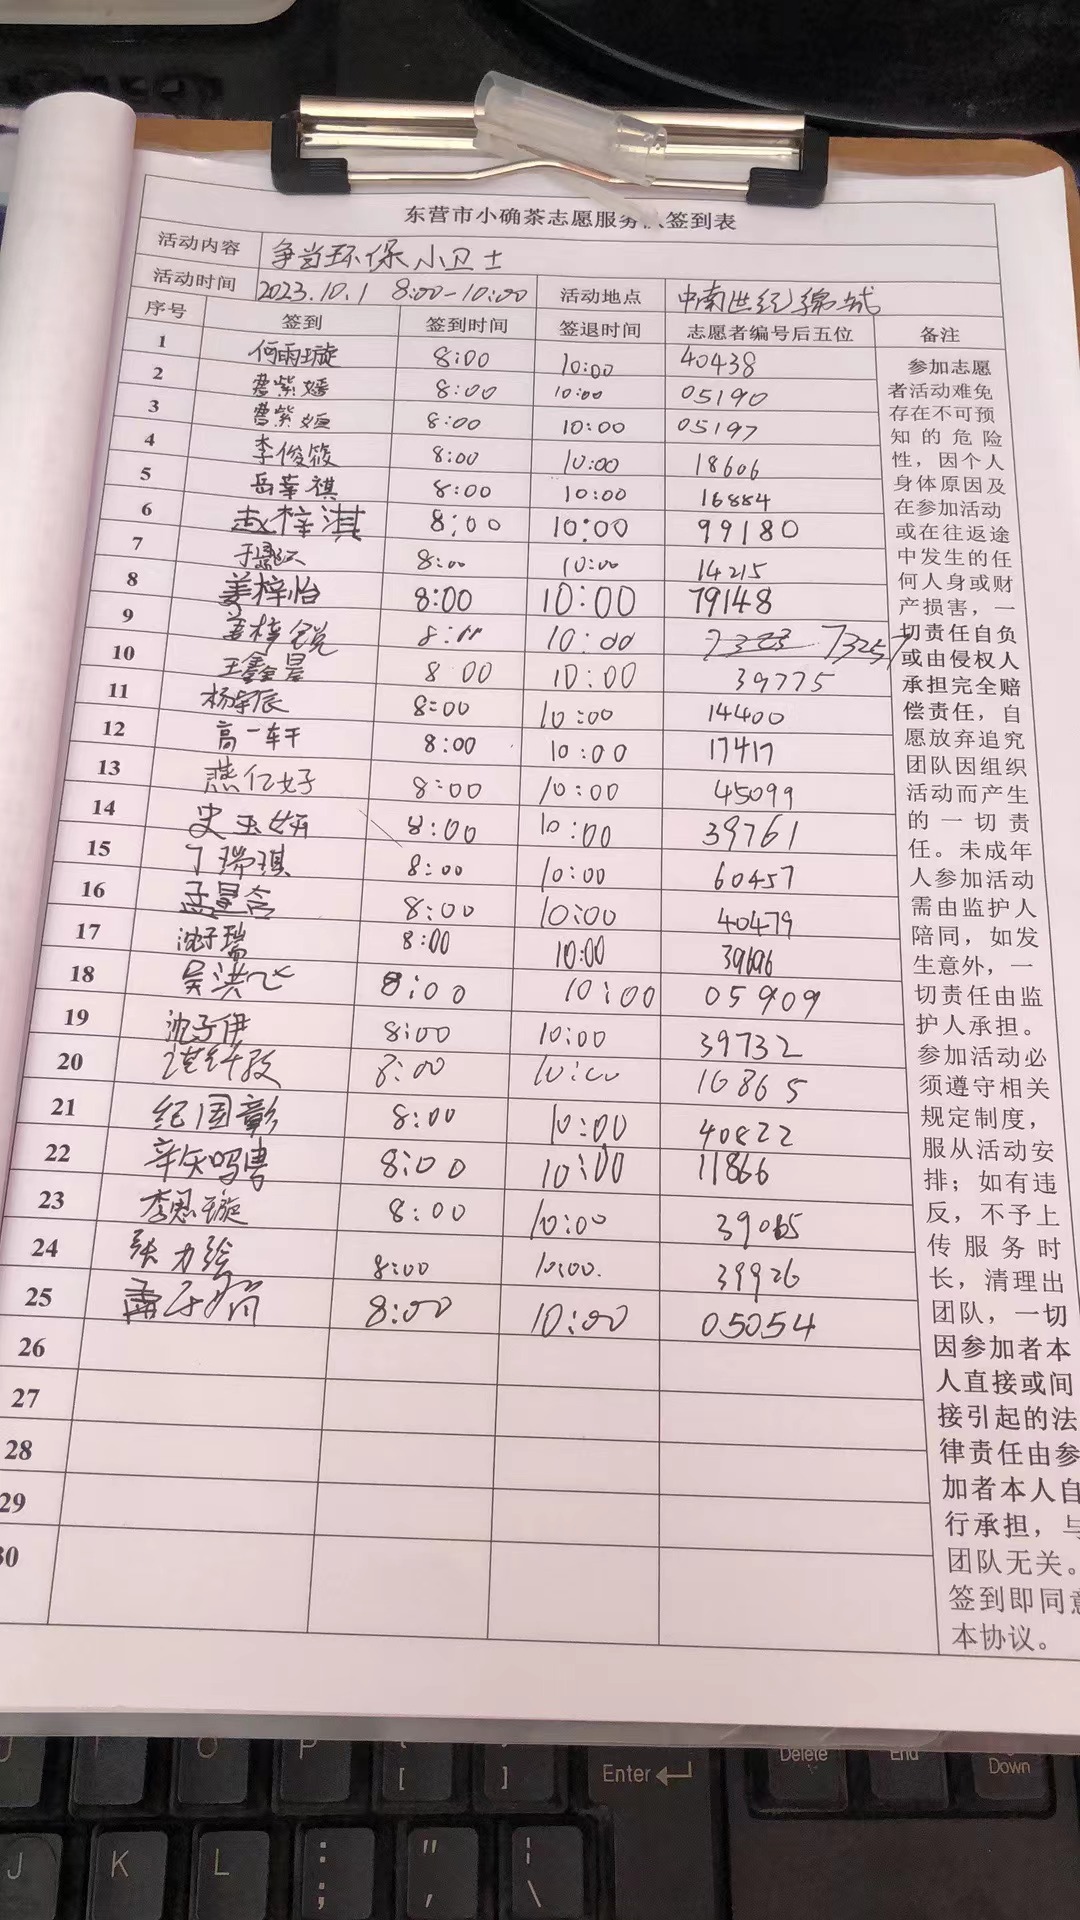 东营市小确茶志愿服务 签到表
活动内容 争当环保小卫士
活动时间 2023.10.1 8:00-10:00 活动地点 中南世纪锦城
序号 签到 签到时间 签退时间 志愿者编号后五位 备注
1 何雨璇 8:00 10:00 40438
2 曹紫嫣 8:00 10:00 05190
3 曹紫姮 8:00 10:00 05197
4 李俊筱 8:00 10:00 18606
5 岳莘祺 8:00 10:00 16884
6 赵梓淇 8:00 10:00 99180
7 8:00 10:00 14215
8 姜梓怡 8:00 10:00 79148
9 姜梓锐 8:00 10:00 73257
10 王鑫昊 8 00 10:00 39775
11 杨宇辰 8:00 10:00 14400
12 高一轩 8:00 10:00 17417
13 燕亿好 8:00 10:00 45099
14 史玉妍 8:00 10:00 39761
15 丁瑞琪 8:00 10:00 60457
16 孟星含 8:00 10:00 40479
17 沈子瑞 8:00 10:00 39696
18 吴洪飞 8:00 10:00 05909
19 沈子伊 8:00 10:00 39732
20 8:00 10:00 16865
21 纪国彰 8:00 10:00 40822
22 8:00 10:00 11866
23 李思璇 8:00 10:00 39065
24 张力绘 8:00 10:00. 39926
25 8:00 10:00 05054
26
27
28
29
30
参加志愿
者活动难免
存在不可预
知的危险
性，因个人
身体原因及
在参加活动
或在往返途
中发生的任
何人身或财
产损害，一
切责任自负
或由侵权人
承担完全赔
偿责任，自
愿放弃追究
团队因组织
活动而产生
的一切责
任。未成年
人参加活动
需由监护人
陪同，如发
生意外，一
切责任由监
护人承担。
参加活动必
须遵守相关
规定制度，
服从活动安
排；如有违
反，不予上
传服务时
长，清理出
团队，一切
因参加者本
人直接或间
接引起的法
律责任由参
加者本人自
行承担，与
团队无关。
签到即同意
本协议。
O P [ ] Enter Delete End Down
J K L : ; " , \